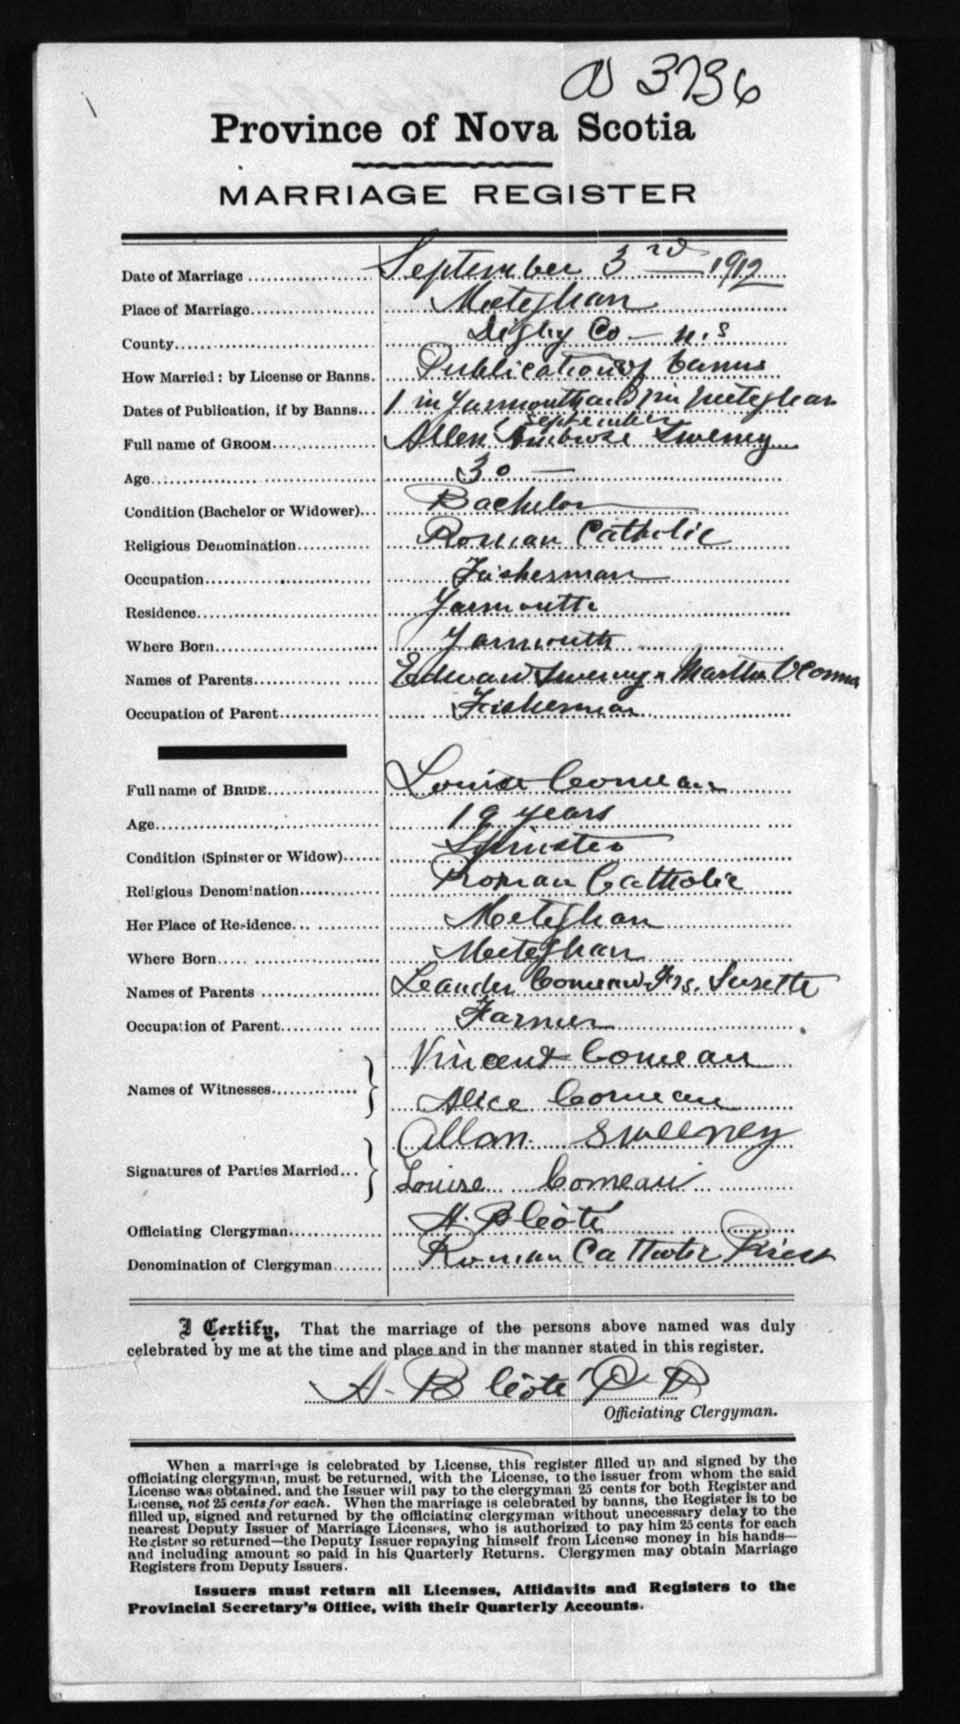 3736
Province of Nova Scotia
MARRIAGE REGISTER
Date of Marriage September 3rd 1912
Place of Marriage Meteghan
County Digby Co — N.S
How Married: by License or Banns. Publication of banns
Dates of Publication, if by Banns 1 in Yarmouth and 1 in Meteghan
September
Full name of GROOM Allen Ambrose Sweney
Age 30 —
Condition (Bachelor or Widower) Bachelor
Religious Denomination Roman Catholic
Occupation Fisherman
Residence Yarmouth
Where Born Yarmouth
Names of Parents Edward Sweney & Martha OConnor
Occupation of Parent Fisherman
Full name of BRIDE Louise Comeau
Age 19 years
Condition (Spinster or Widow) Spinster
Religious Denomination Roman Catholic
Her Place of Residence Meteghan
Where Born Meteghan
Names of Parents Leander Comeau Suzette
Occupation of Parent Farmer
Names of Witnesses Vincent Comeau
Alice Comeau
Signatures of Parties Married Allan Sweeney
Louise Comeau
Officiating Clergyman A. B Côté
Denomination of Clergyman Roman Catholic Priest
I Certify, That the marriage of the persons above named was duly
celebrated by me at the time and place and in the manner stated in this register.
A. B Côté P P
Officiating Clergyman.
When a marriage is celebrated by License, this register filled up and signed by the
officiating clergyman, must be returned, with the License, to the issuer from whom the said
License was obtained, and the Issuer will pay to the clergyman 25 cents for both Register and
License, not 25 cents for each. When the marriage is celebrated by banns, the Register is to be
filled up, signed and returned by the officiating clergyman without unecessary delay to the
nearest Deputy Issuer of Marriage Licenses, who is authorized to pay him 25 cents for each
Register so returned—the Deputy Issuer repaying himself from License money in his hands—
and including amount so paid in his Quarterly Returns. Clergymen may obtain Marriage
Registers from Deputy Issuers.
Issuers must return all Licenses, Affidavits and Registers to the
Provincial Secretary's Office, with their Quarterly Accounts.